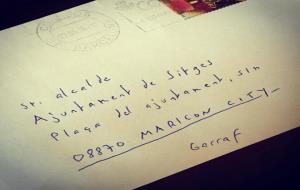 Sr. alcalde
Ajuntament de Sitges
Plaça del ajuntament, s/n
08870 MARICON CITY
Garraf